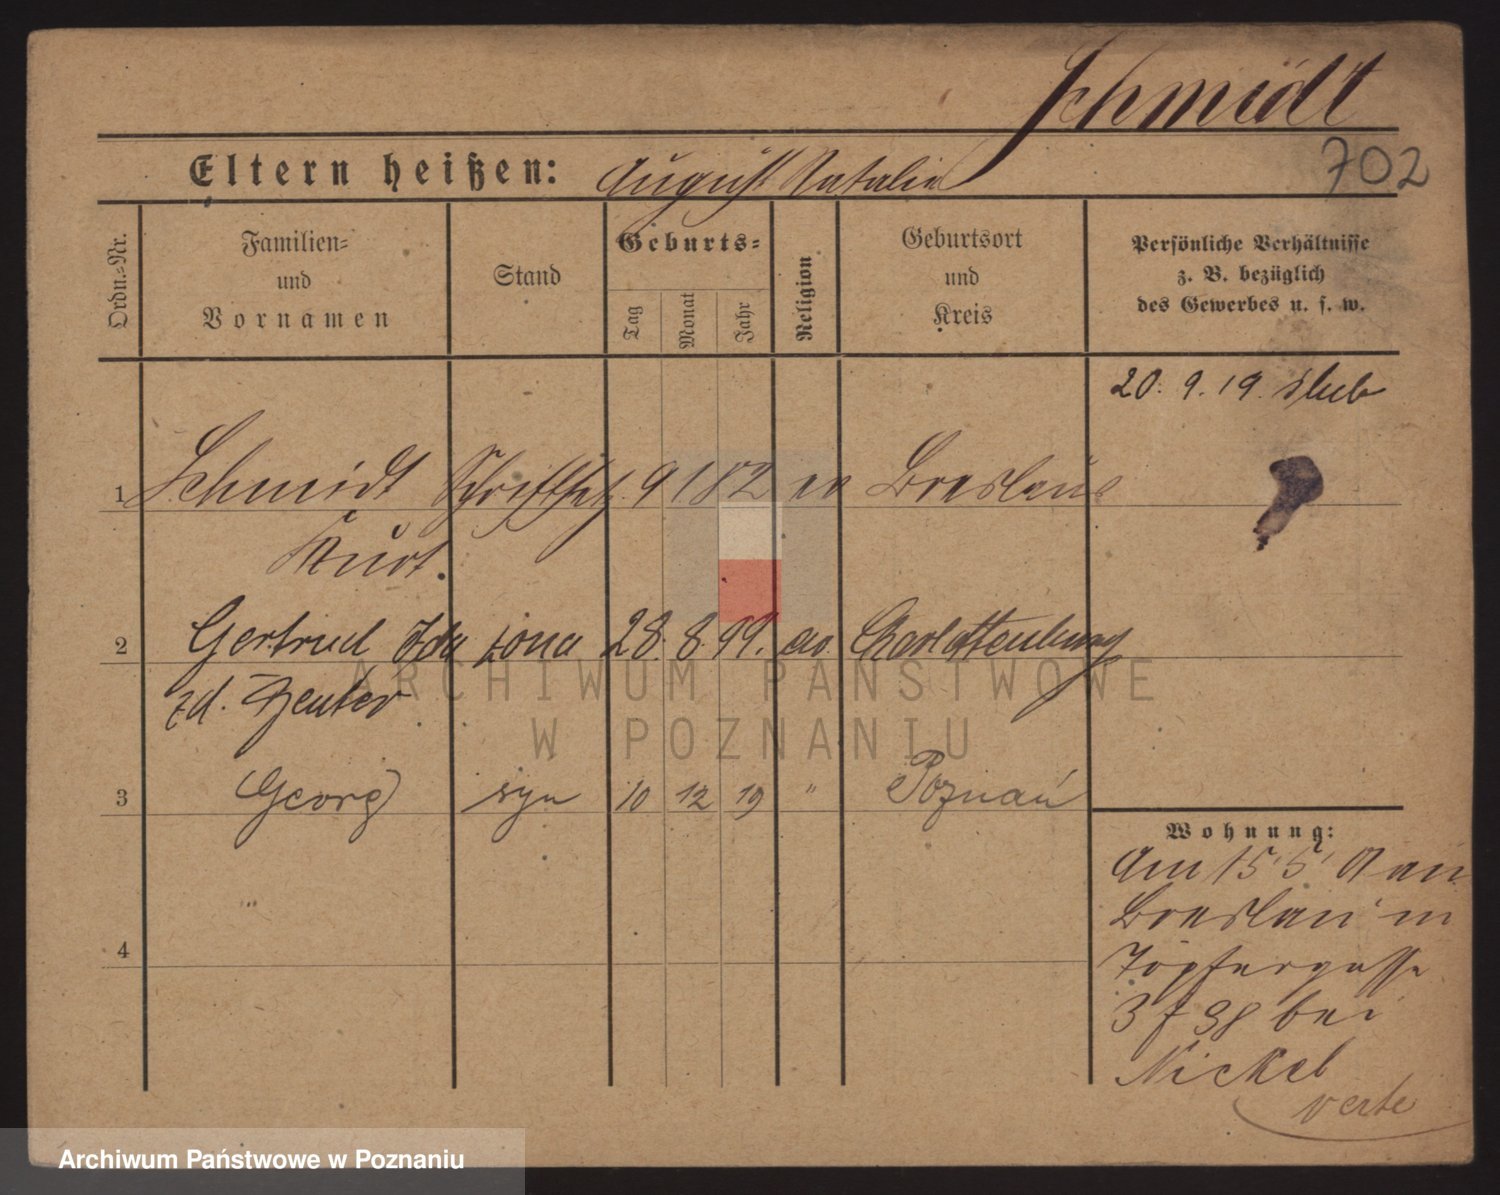 Schmidt
702
Eltern heißen: August Natalie
Ordn.=Nr.
Familien=
und
Vornamen
Stand
Geburts=
Tag
Monat
Jahr
Religion
Geburtsort
und
Kreis
Persönliche Verhältnisse
z. B. bezüglich
des Gewerbes u. s. w.
20. 9. 19. slub
1 Schmidt Schriftsetz. 9 1 82 ev Breslau
Kurt.
2 Gertrud Ida żona 28. 8. 99. ev. Charlottenburg
zd. Zenker
3 Georg syn 10 12 19 " Poznań
4
Wohnung:
Am 15/5
Breslau in
Töpfergasse
3 f 98 bei
Nickel
verte
ARCHIWUM PAŃSTWOWE
W POZNANIU
Archiwum Państwowe w Poznaniu